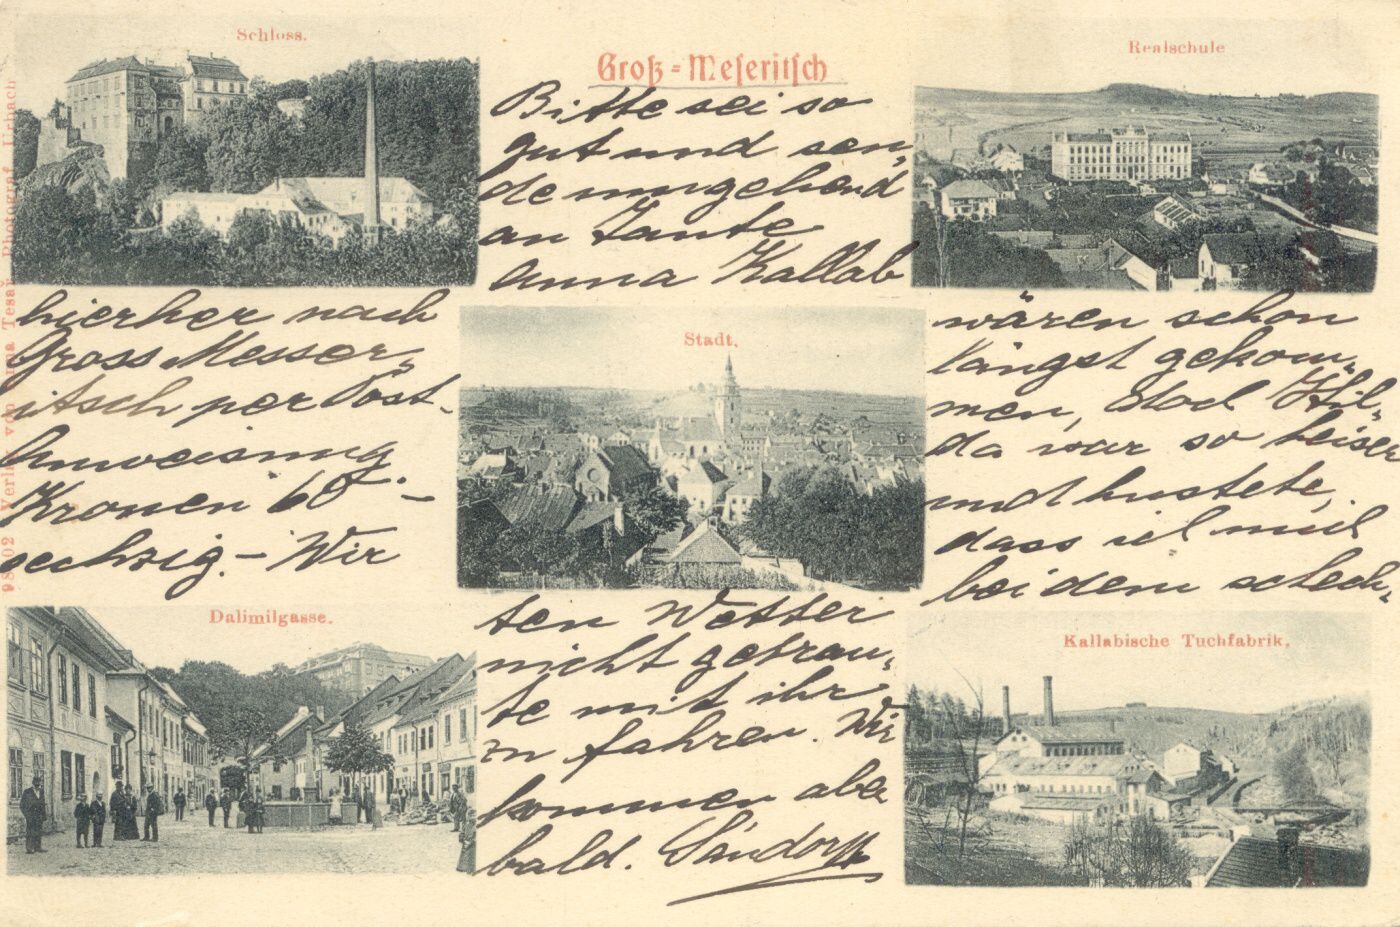 Schloss.
Groß-Meseritsch
Realschule
Bitte sei so
gut und sen„
de umgehend
an Tante
Anna Kallab
hierher nach
Gross Messer„
itsch per Post-
Anweisung.
Kronen 60 –
sechzig. – Wir
Stadt.
wären schon
längst gekom„
men, doch Hil„
da war so heiser
und hustete,
dass ich mich
bei dem schlech„
ten Wetter
nicht getrau„
te mit ihr
zu fahren. Wir
kommen aber
bald. Sándor
Dalimilgasse.
Kallabische Tuchfabrik.
Verlag von Anna Tesař Photograf Urbach